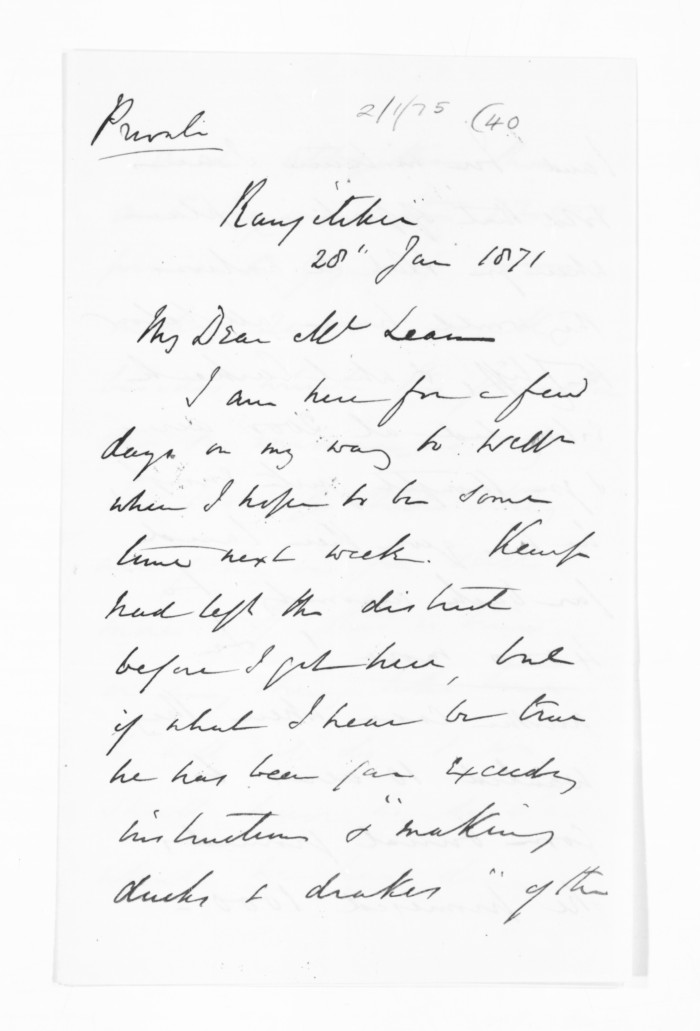 2/1/75 (40
Private
Rangitikei
28" Jan 1871
My Dear McLean
I am here for a few
days on my way to Welln
where I hope to be some
time next week. Kemp
had left the district
before I got here, but
if what I hear be true
he has been far exceeding
instructions & "making
ducks & drakes" of the